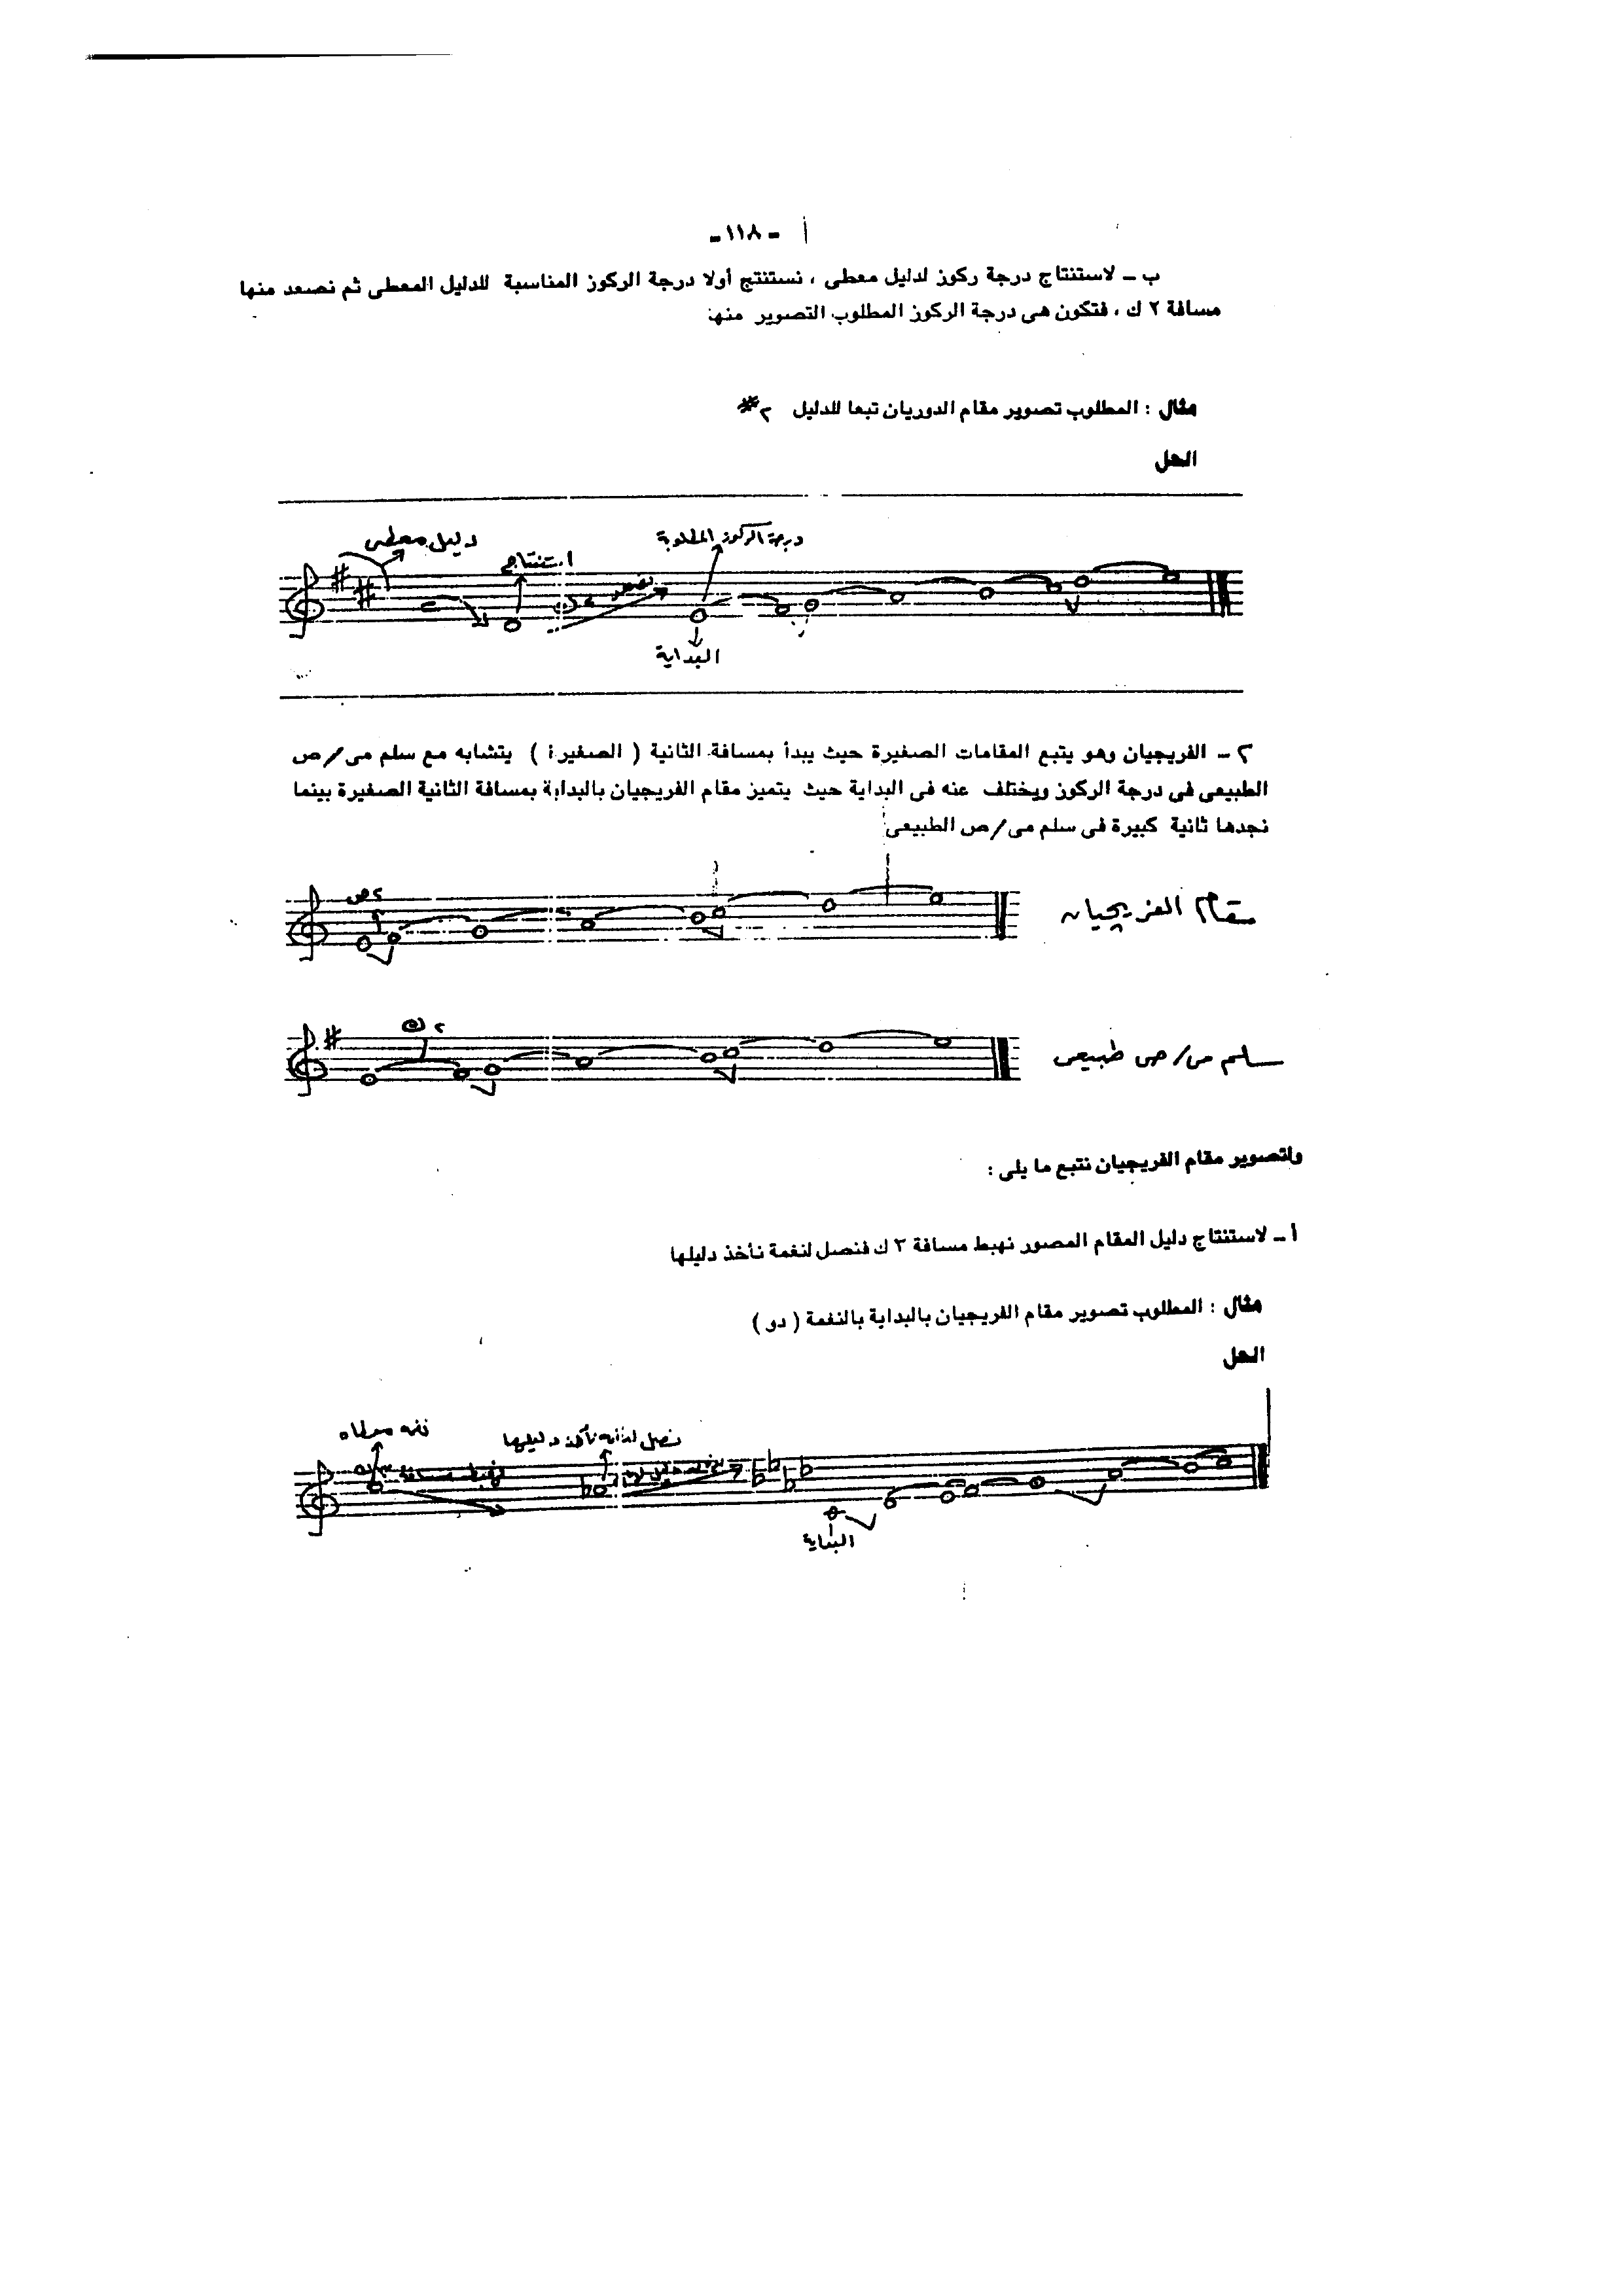 - ١١٨ -
ب - لاستنتاج درجة ركوز لدليل معطى ، نستنتج أولا درجة الركوز المناسبة للدليل المعطى ثم نصعد منها
مسافة ٢ ك ، فتكون هى درجة الركوز المطلوب التصوير منها
مثال : المطلوب تصوير مقام الدوريان تبعا للدليل ٢#
الحل
دليل معطى
استنتاج
نصعد ٢ ك
درجة الركوز المطلوبة
البداية
٢ - الفريجيان وهو يتبع المقامات الصغيرة حيث يبدأ بمسافة الثانية ( الصغيرة ) يتشابه مع سلم مى/ص
الطبيعى فى درجة الركوز ويختلف عنه فى البداية حيث يتميز مقام الفريجيان بالبداية بمسافة الثانية الصغيرة بينما
نجدها ثانية كبيرة فى سلم مى/ص الطبيعى
٢ص
مقام الفريجيان
٢ ك
سلم مى/ص طبيعى
ولتصوير مقام الفريجيان نتبع ما يلى :
أ - لاستنتاج دليل المقام المصور نهبط مسافة ٣ ك فنصل لنغمة نأخذ دليلها
مثال : المطلوب تصوير مقام الفريجيان بالبداية بالنغمة ( دو )
الحل
نغمة معطاه
نهبط مسافة ٣ ك
نصل لنغمة نأخذ دليلها
البداية